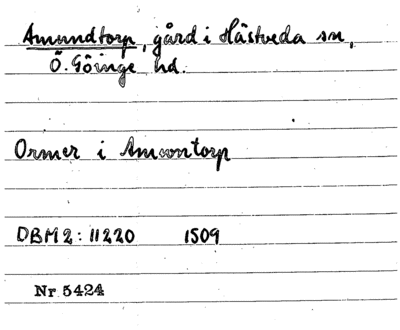 Amundtorp, gård i Hästveda sn,
Ö. Göinge hd.
Ormer i Amwntorp
DBM2: 11220 1509
Nr 5424